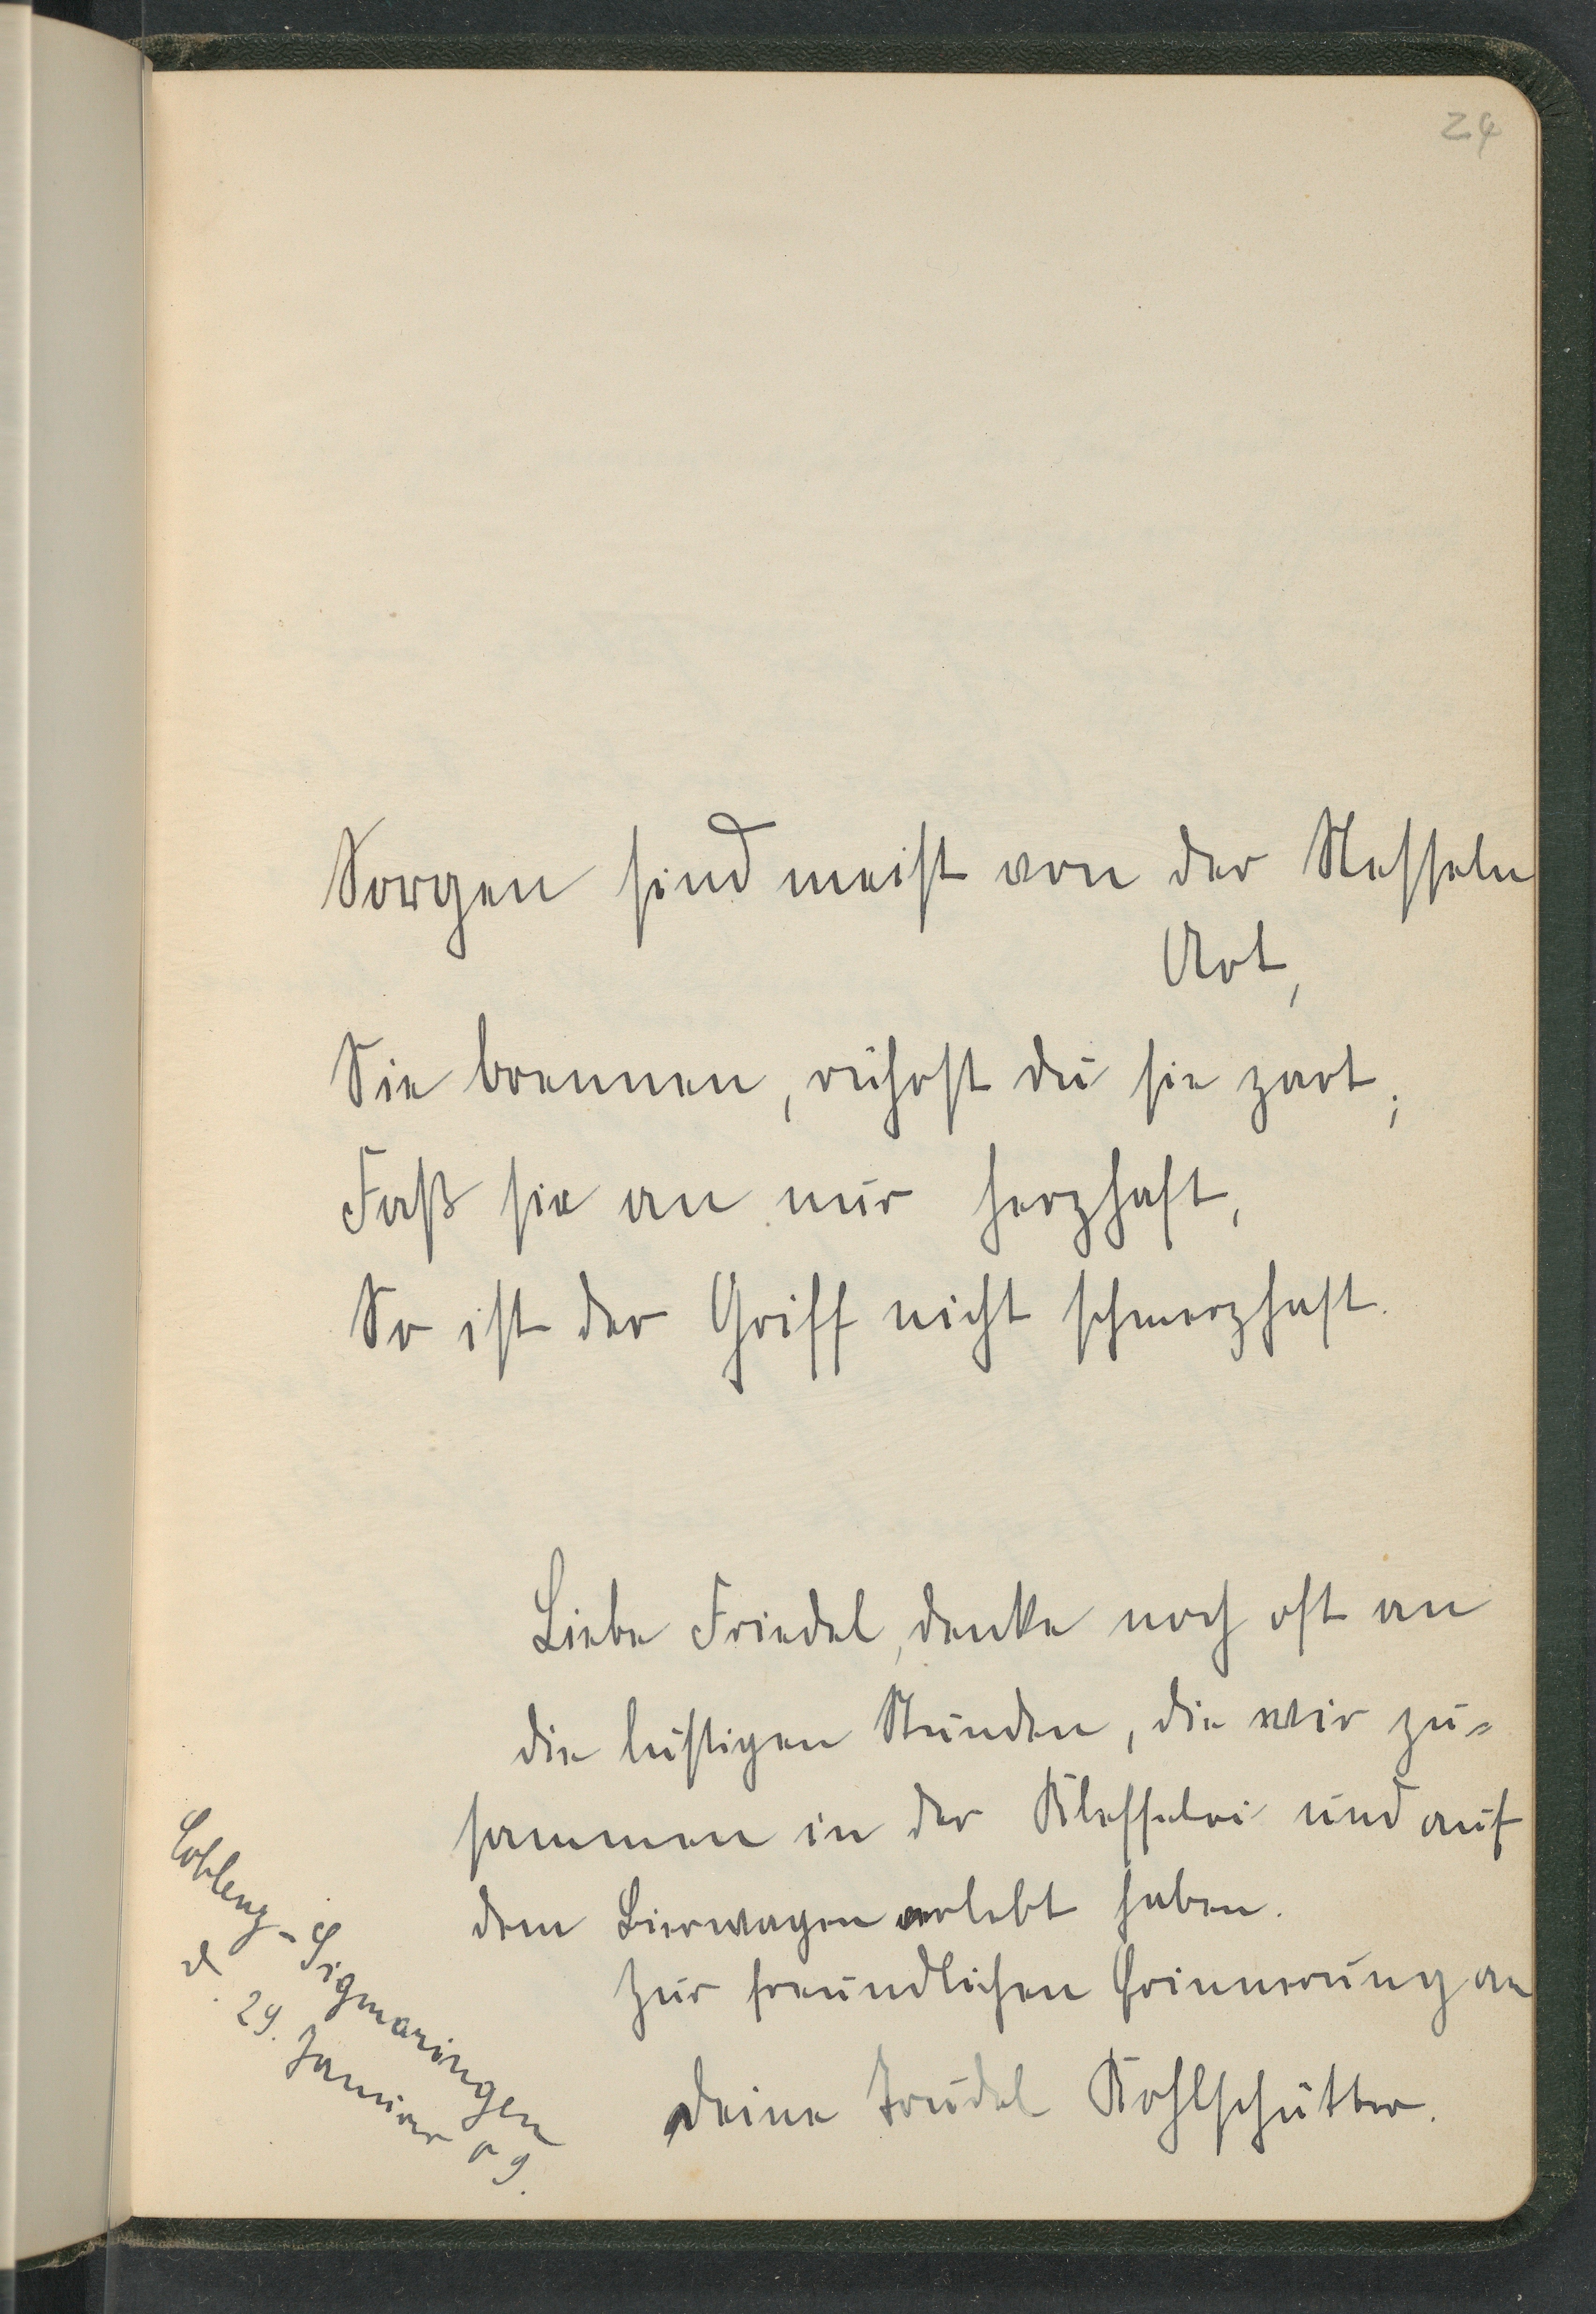 24
Sorgen sind meist von der Nesseln
Art,
Sie brennen, rührst du sie zart;
Faß sie an nur herzhaft,
So ist der Griff nicht schmerzhaft.
Liebe Friedel, denke noch oft an
die lustigen Stunden, die wir zu-
sammen in der Klesselei und auf
dem Bierwagen verlebt haben.
Zur freundlichen Erinnerung an
Deine Trudel Kohlschütter.
Coblenz-Sigmaringen
d. 29. Januar 09.